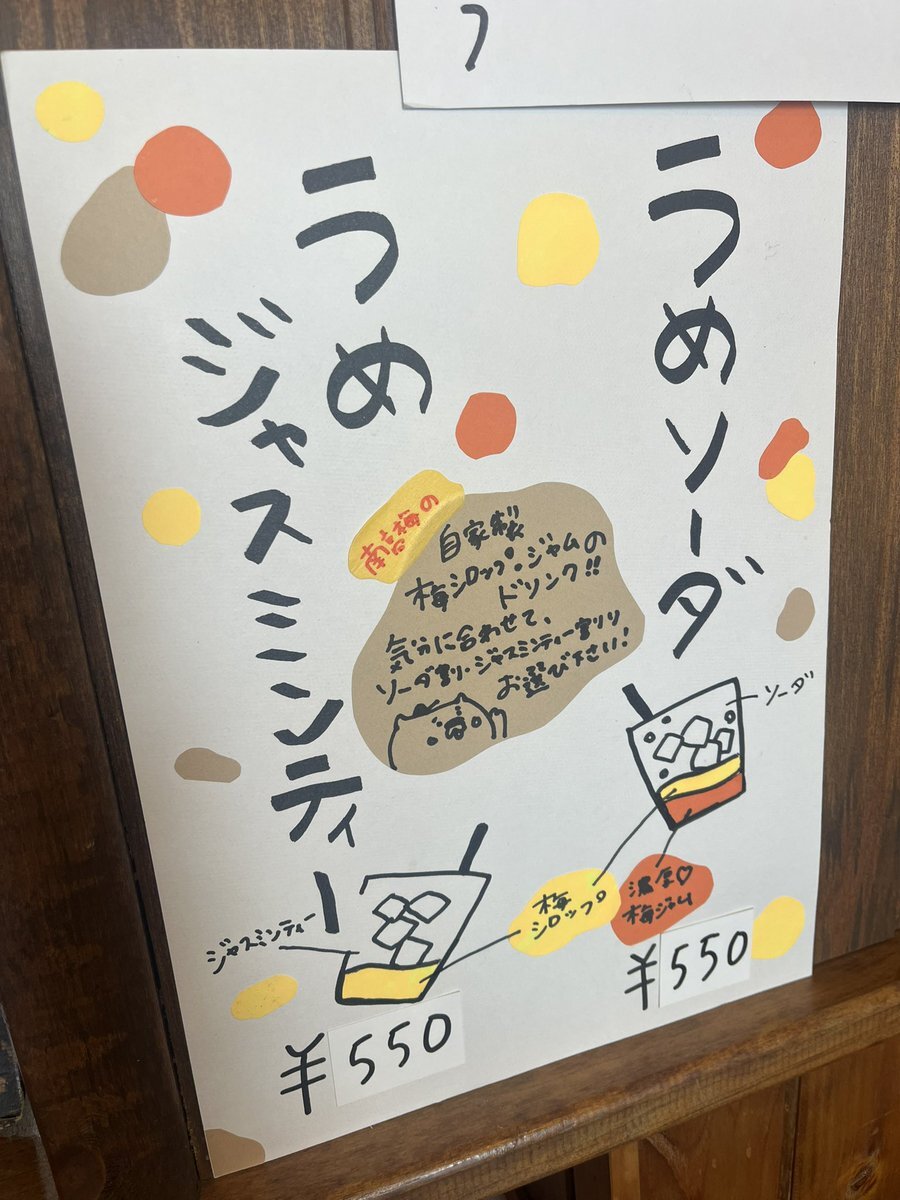 うめソーダ
うめ
ジャスミンティー
南高梅の
自家製
梅シロップ・ジャムの
ドリンク!!
気分に合わせて、
ソーダ割り・ジャスミンティー割り
お選び下さい!
ソーダ
梅
シロップ
濃厚♡
梅ジャム
¥550
ジャスミンティー
¥550